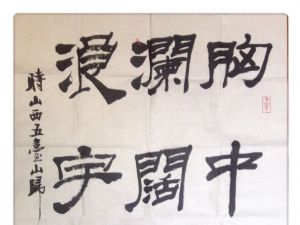 胸中
瀾闊
浪宇
時山西五臺山歸